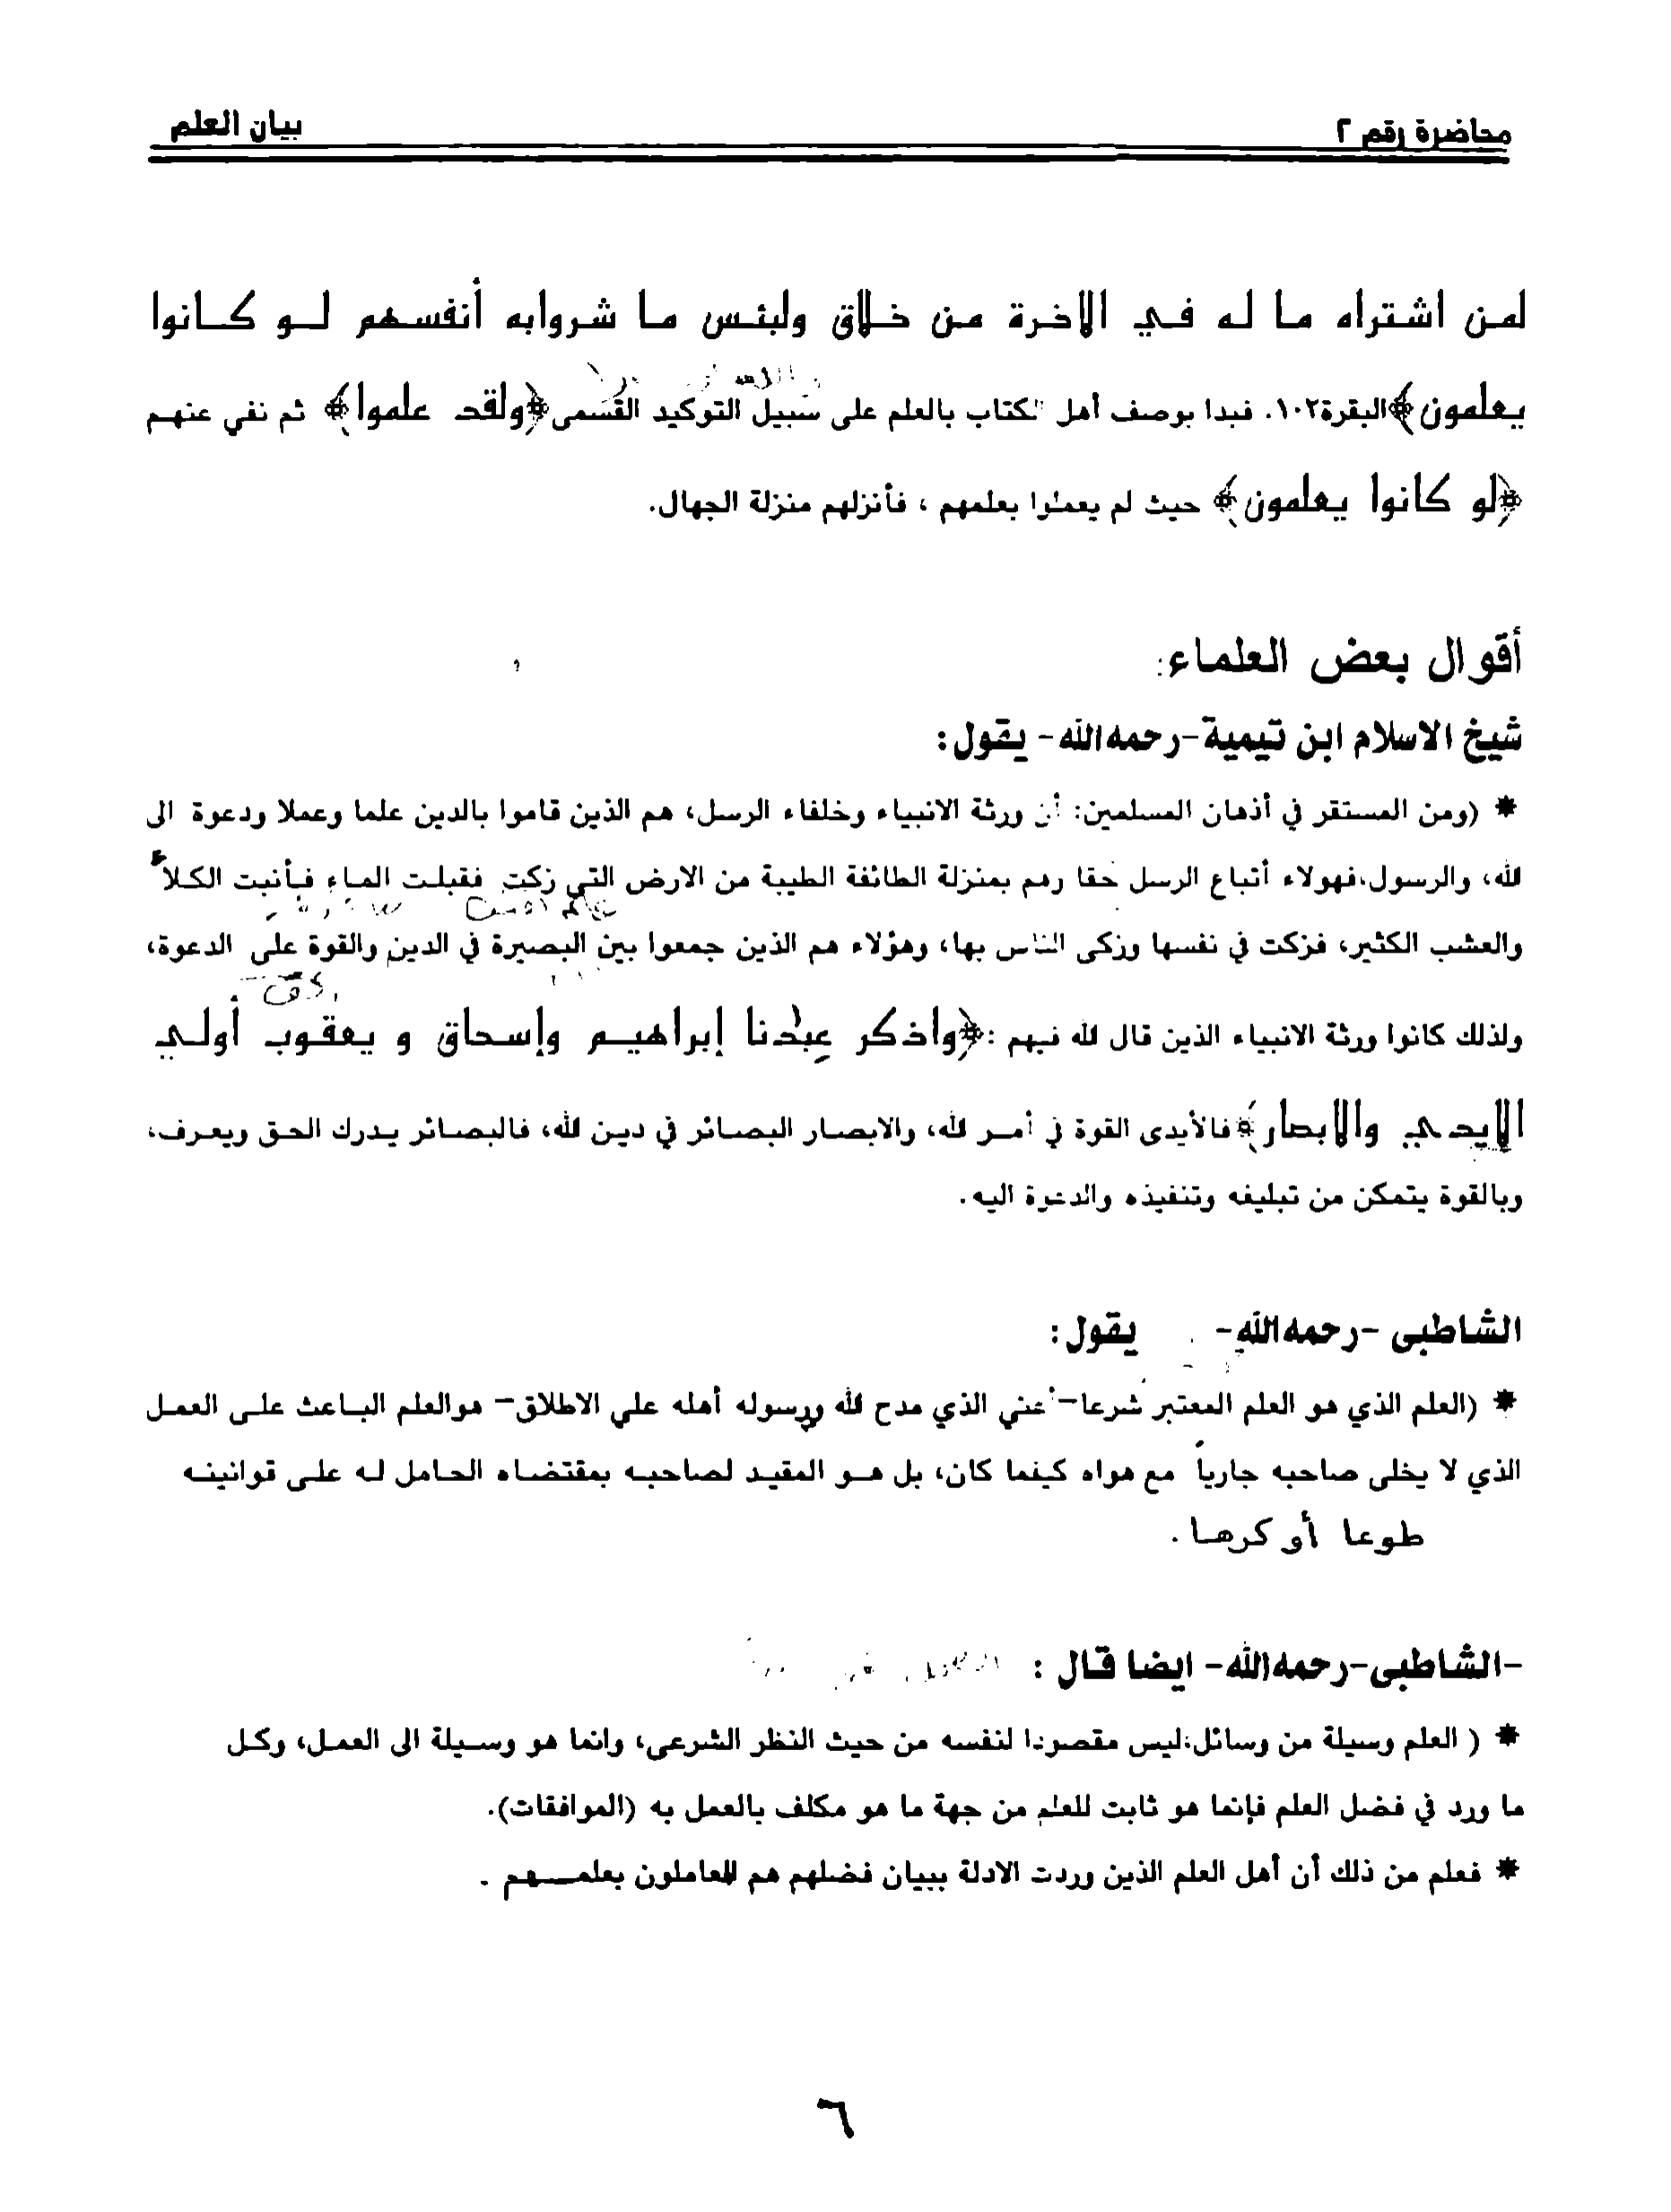 محاضرة رقم ٢
بيان العلم
لمن اشتراه ما له في الاخرة من خلاق ولبئس ما شروابه أنفسهم لو كانوا
يعلمون﴾البقرة١٠٢. فبدا بوصف أهل لكتاب بالعلم على سبيل التوكيد القسمى﴿ولقد علموا﴾ ثم نفي عنهم
﴿لو كانوا يعلمون﴾ حيث لم يعملوا بعلمهم ، فأنزلهم منزلة الجهال.
أقوال بعض العلماء:
شيخ الاسلام ابن تيمية-رحمه الله- يقول:
* (ومن المستقر في أذهان المسلمين: أن ورثة الانبياء وخلفاء الرسل، هم الذين قاموا بالدين علما وعملا ودعوة الى
لله، والرسول،فهولاء أتباع الرسل حقا وهم بمنزلة الطائفة الطيبة من الارض التي زكت فقبلت الماء فأنبت الكلأ
والعشب الكثير، فزكت في نفسها وزكى الناس بها، وهؤلاء هم الذين جمعوا بين البصيرة في الدين والقوة على الدعوة،
ولذلك كانوا ورثة الانبياء الذين قال لله فيهم :﴿واذكر عبدنا إبراهيم وإسحاق و يعقوب أولي
الايدي والابصار﴾فالأيدى القوة في أمر لله، والابصار البصائر في دين لله، فالبصائر يدرك الحق ويعرف،
وبالقوة يتمكن من تبليغه وتنفيذه والدعوة اليه.
الشاطبى -رحمه الله- يقول:
* (العلم الذي هو العلم المعتبر شرعا-أعني الذي مدح لله ورسوله أهله علي الاطلاق- هوالعلم الباعث على العمل
الذي لا يخلى صاحبه جارياً مع هواه كيفما كان، بل هو المقيد لصاحبه بمقتضاه الحامل له على قوانينه
طوعا أو كرها .
-الشاطبى-رحمه الله- ايضا قال :
* ( العلم وسيلة من وسائل،ليس مقصودا لنفسه من حيث النظر الشرعى، وانما هو وسيلة الى العمل، وكل
ما ورد في فضل العلم فإنما هو ثابت للعلم من جهة ما هو مكلف بالعمل به (الموافقات).
* فعلم من ذلك أن أهل العلم الذين وردت الادلة ببيان فضلهم هم العاملون بعلمهم .
٦